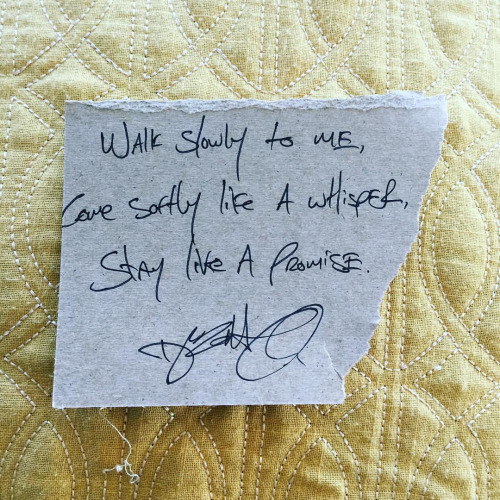 WALK Slowly to ME,
Come Softly like A WHISPER,
STAY like A PROMISE.